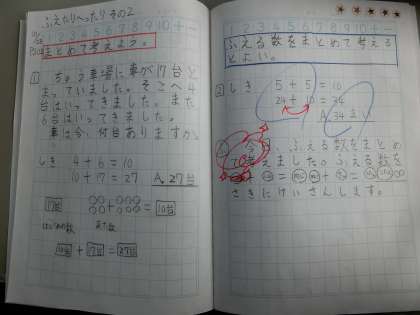 ふえたりへったりその2
1 2 3 4 5 6 7 8 9 10 + −
まとめて考えよう。
1 ちゅう車場に車が17台と
まっていました。そこへ4
台はいってきました。また
6台はいってきました。
車は今、何台ありますか。
しき 4+6=10
10+17=27 A.27台
17台 + = 10台
はじめの数 来た数
10台 + 17台 = 27台
ふえる数をまとめて考える
とよい。
2 しき 5+5=10
24+10=34
A 34
今日は、ふえる数をまとめ
て考えました。ふえる数を
さきにけいさんします。